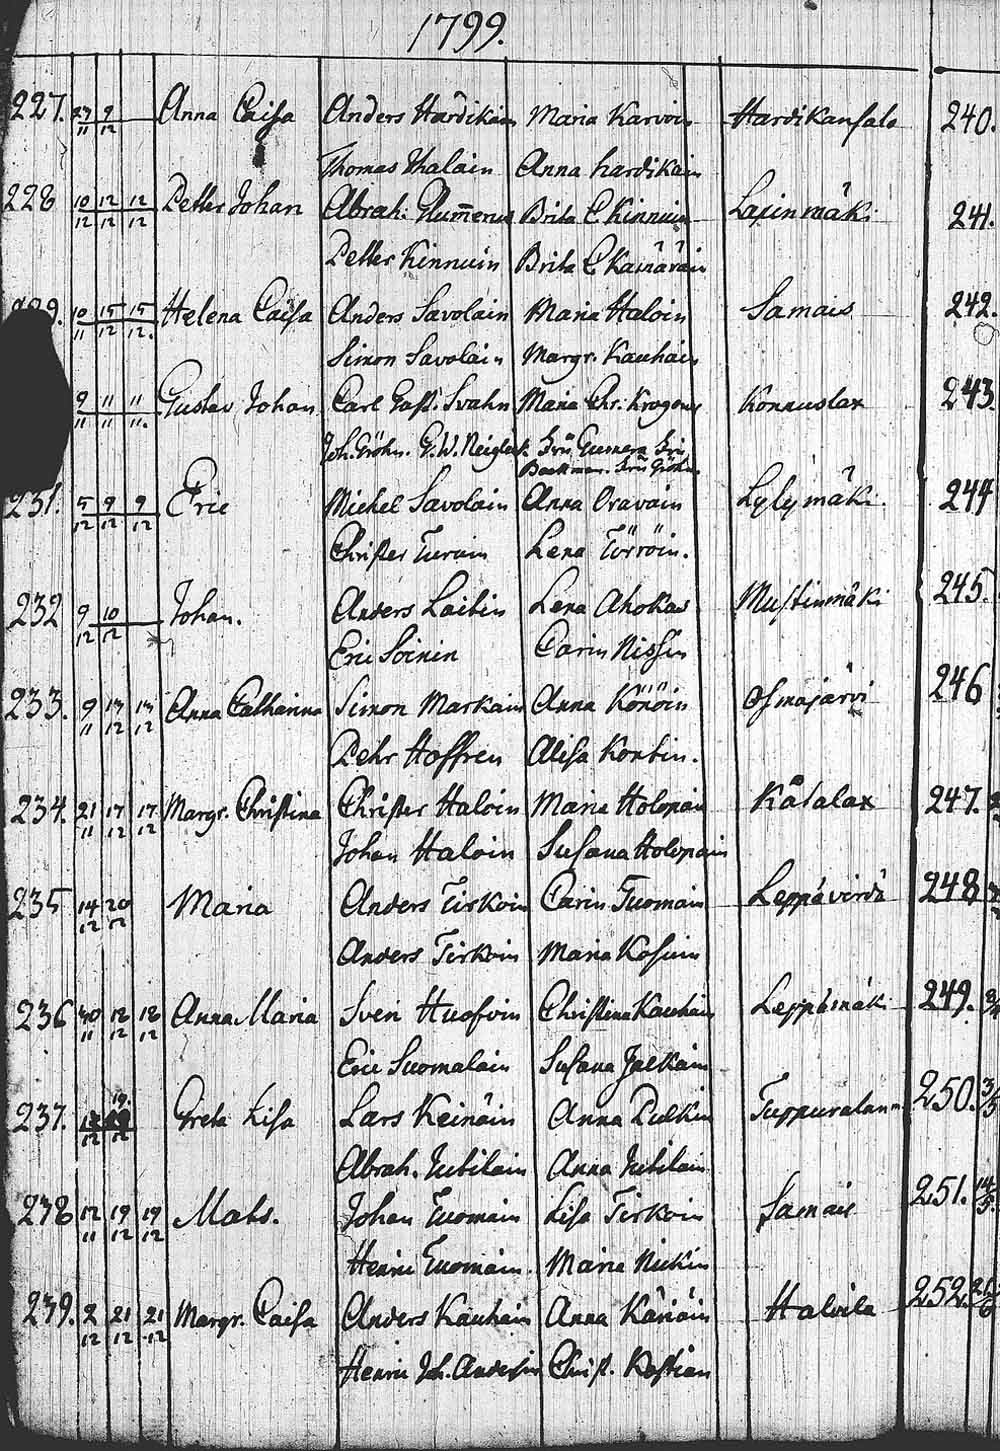 1799.
227. 27/11 9/12 Anna Caisa Anders Hardikain Maria Karvoin Hardikansalo 240.
Thomas Ihalain Anna hardikain
228 10/12 12/12 12/12 Petter Johan Abrah: Brita C Kinnuin Lapinmäki 241.
Petter Kinnuin Brita C Kainäräin
229. 10/11 15/12 15/12. Helena Caisa Anders Savolain Maria Haloin Samais 242.
Simon Savolain Margr. Kauhain
9/11 11/11 11/11. Gustav Johan Carl Gust. Svahn Maria Chr: Konnuslax 243.
Joh. Gröhn. G. W. Neiglick.
231. 5/12 9/12 9/12 Eric Michel Savolain Anna Oravain Lylymäki 244
Christer Turuin Lena Törröin.
232 9/12 10/12 Johan. Anders Laitin Lena Ahokas Mustinmäki 245.
Eric Soinin Carin Nissin
233. 9/11 13/12 13/12 Anna Catharina Simon Markain Anna Könöin Osmajärvi 246
Pehr Hoffren Alisa Kontin.
234. 21/11 17/12 17/12 Margr. Christina Christer Haloin Maria Holopain Kådalax 247.
Johan Haloin Susana Holopain
235 14/12 20/12 Maria Anders Tirkoin Carin Tuomain Leppävirda 248
Anders Tirkoin Maria Kosuin
236 30/11 12/12 12/12 Anna Maria Sven Huofvin Christina Kauhain Leppämäki 249.
Eric Suomalain Susana Jalkain
237. Greta Lisa Lars Keinäin Anna Pulkin 250. 3/5
Abrah. Jutilain Anna Jutilain
238 12/11 19/12 19/12 Mats. Johan Tuomain Lisa Tirkoin Samais 251. 14/5.
Henric Tuomain. Maria Nickin
239. 2/12 21/12 21/12 Margr. Caisa Anders Kauhain Anna Käriäin Halvila 252.
Henric Joh. Andersin Christ. Rastian